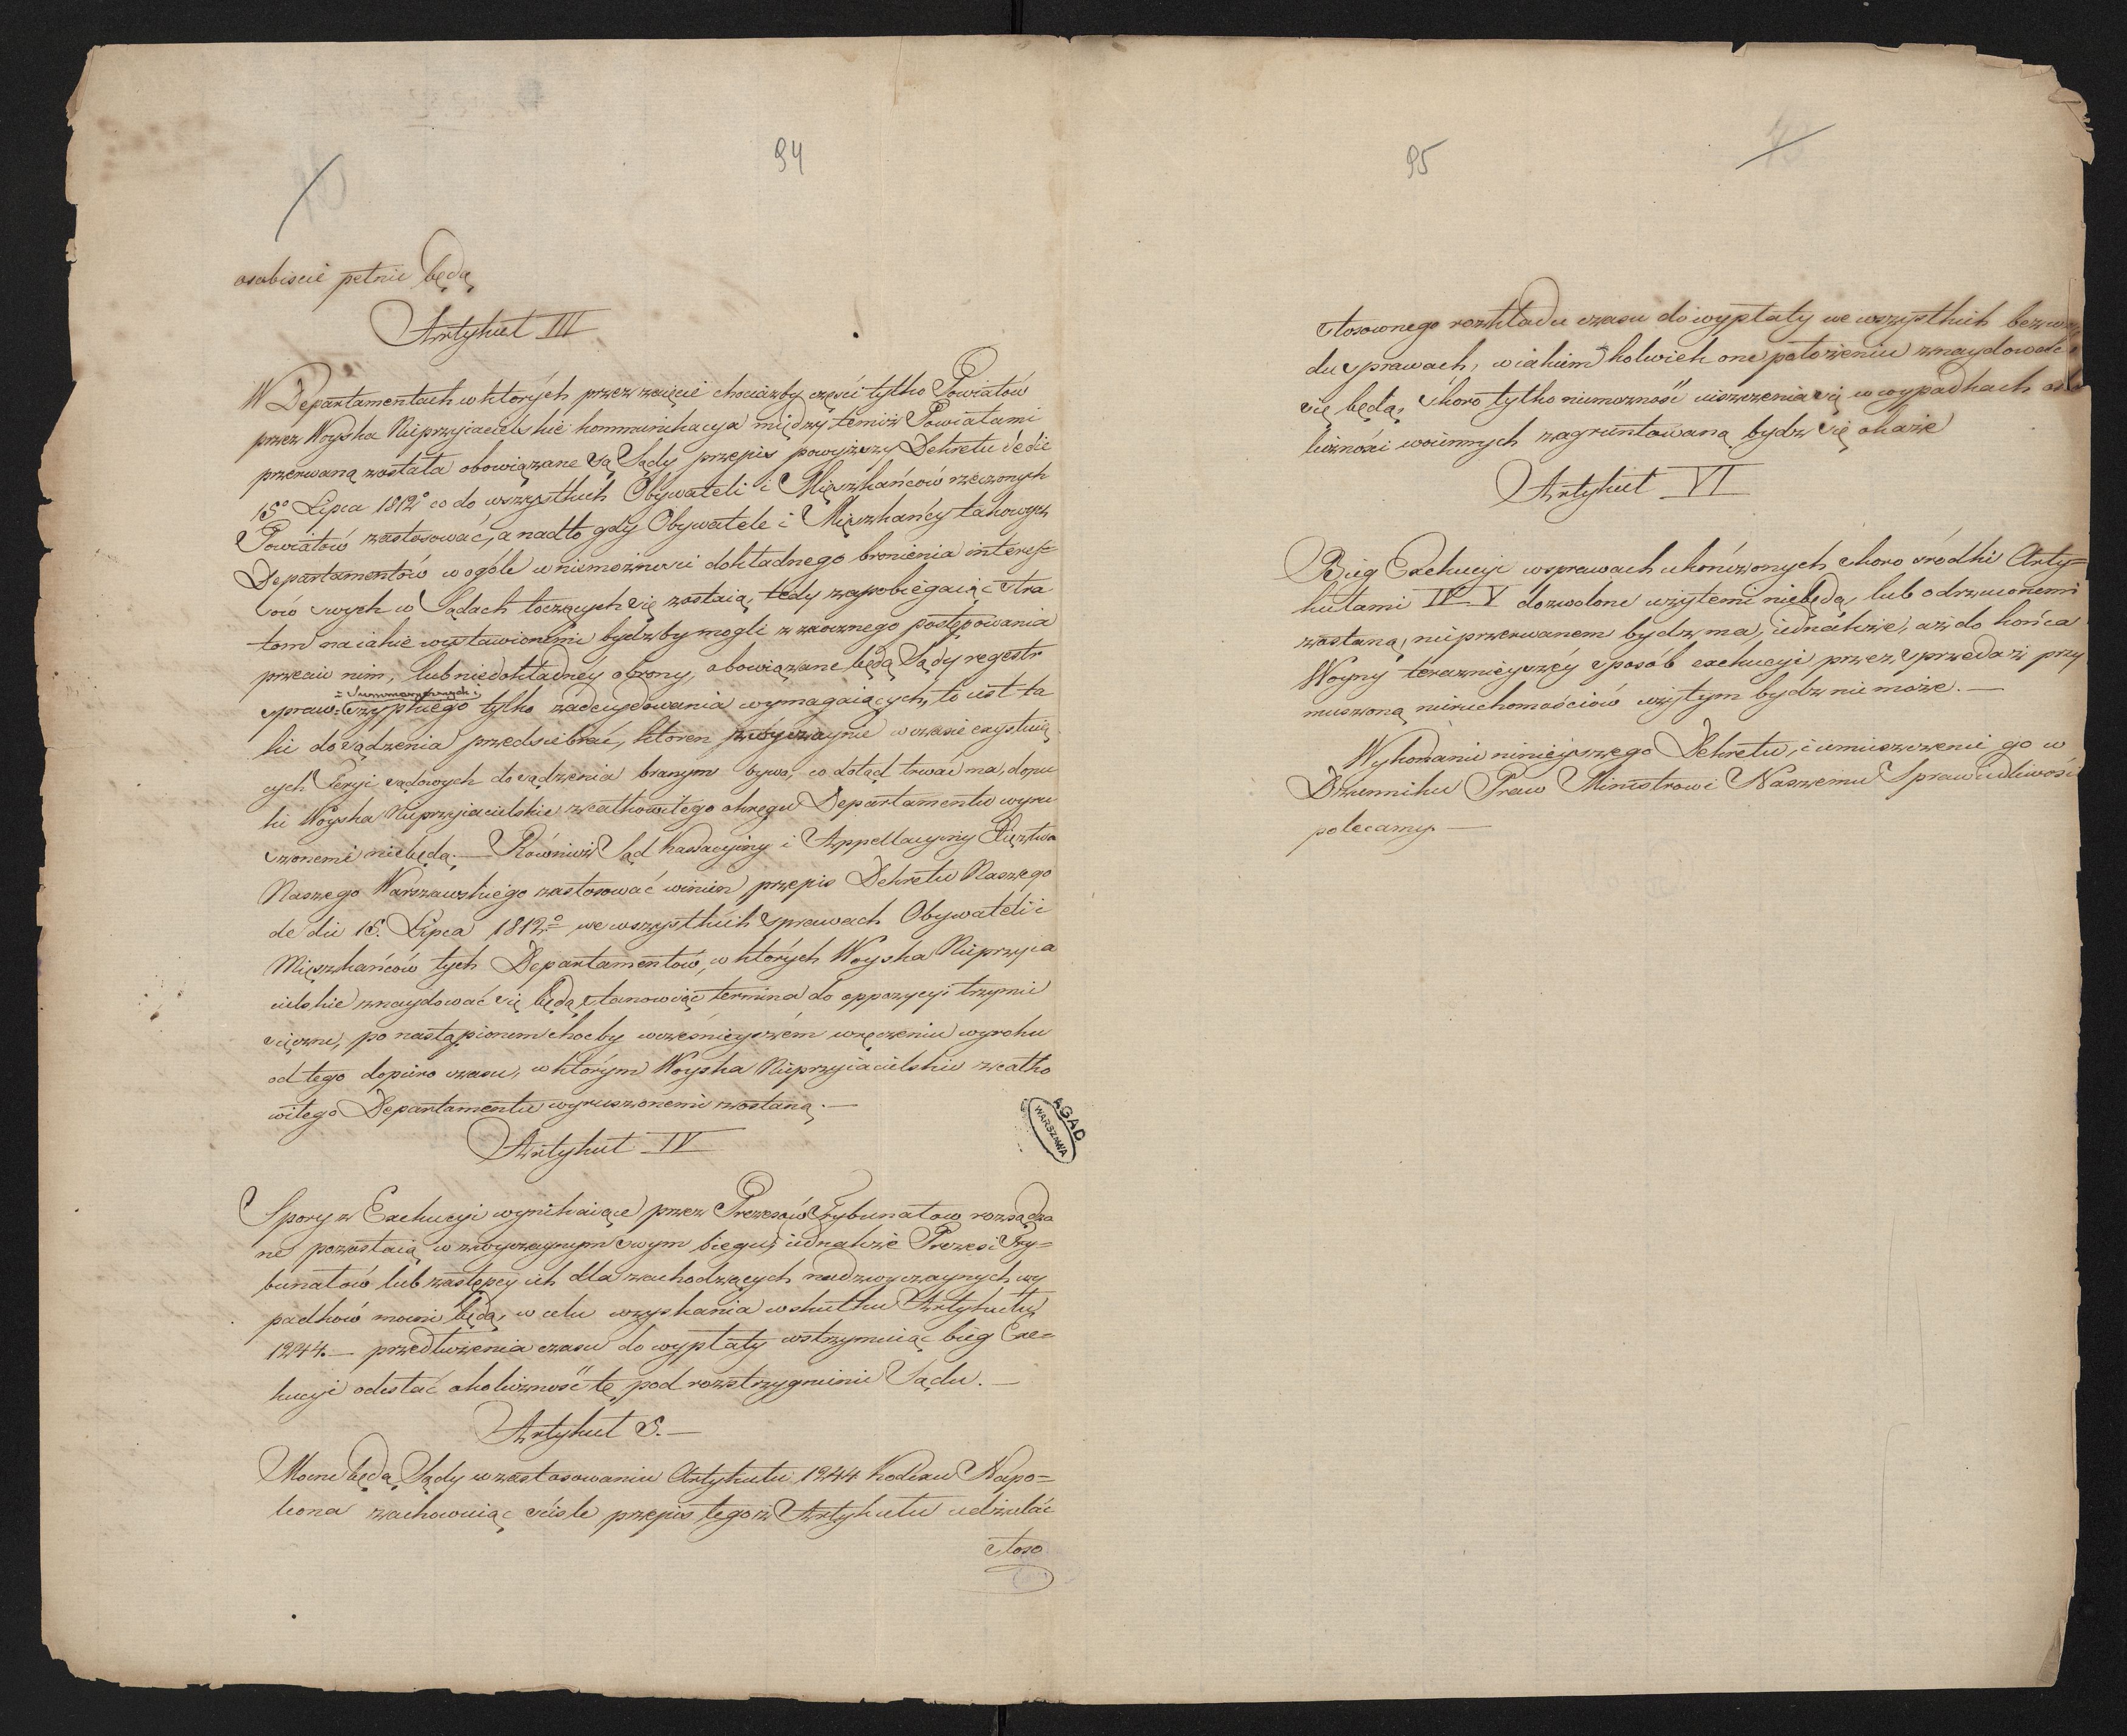 94
osobiscie pełnić będą
Artykuł III
W Departamentach w których przez zajęcie chociażby części tylko Powiatów
przez Woyska Nieprzyjacielskie kommunikacya między temiż Powiatami
przerwaną została obowiązane są Sądy przepis powyższy Dekretu de die
15° Lipca 1812° co do wszystkich Obywateli i Mięszkańców rzeczonych
Powiatów zastosować, a nadto gdy Obywatele i Mięszkańcy takowych
Departamentów w ogóle w niemożności dokładnego bronienia interess=
sów swych w Sądach toczących się zostaią, tedy zapobiegaiąc stra
tom na iakie wystawionemi bydzby mogli z zaocznego postępowania
przeciw nim, lub niedokładnéy obrony, obowiązane będą Sądy regestr
= Summarycznych =
spraw tylko zadecydowania wymagaiących, to iest ta
ki do sądzenia przedsiebrać, któren zwyczaynie w czasie exystuią
cych Feryi sądowych do sądzenia branym bywa, co dotąd trwać ma, dopó
ki Woyska Nieprzyiacielskie z całkowitego okręgu Departamentu wyru
szonemi niebędą. — Równiéż Sąd Kassacyiny i Appellacyiny Xięztwa
Naszego Warszawskiego zastosować winien przepis Dekretu Naszego
de die 15. Lipca 1812.° we wszystkich sprawach Obywateli i
Mięszkańców tych Departamentów, w których Woyska Nieprzyia
cielskie znaydować się będą stanowiąc termina do oppozycyi trzymie
sięczne, po nastąpionem choćby wcześnieyszém wręczeniu wyroku
od tego dopiero czasu, w którym Woyska Nieprzyiacielskie z całko
witego Departamentu wyruszonemi zostaną. —
AGAD
WARSZAWA
Artykuł IV
Spory z Exekucyi wynikaiące przez Prezesów Trybunałow rozsądza
ne pozostaią w zwyczaynym swym biegu; iednakże Prezesi Try=
bunałów lub zastępcy ich dla zachodzących nadzwyczaynych wy
padków mocni będą, w celu uzyskania w skutku Artykułu
1244. — przedłużenia czasu do wypłaty wstrzymuiąc bieg Exe=
kucyi odesłać okoliczność tę pod rozstrzygnienie Sądu. —
Artykuł 5. —
Mocne będą Sądy w zastosowaniu Artykułu 1244 Kodexu Napo=
leona zachowuiąc ściśle przepis tegoż Artykułu udzielać
stoso
95
stosownego rozkładu czasu do wypłaty we wszystkich bez
du sprawach, w iakiem kolwiek one położeniu znaydować
się będą, skoro tylko niemożność uiszczenia się w wypadkach
liczności woiennych zagruntowaną bydz się okaże
Artykuł VI
Bieg Exekucyi w sprawach ukończonych skoro środki Arty=
kułami IV V dozwolone użytemi niebędą, lub odrzuconemi
zostaną, nieprzerwanem bydz ma, iednakże, aż do końca
Woyny teraznieyszéy sposób exekucyi przez sprzedaż przy
muszoną nieruchomościów użytym bydz nie może. —
Wykonanie ninieyszego Dekretu, i umieszczenie go w
Dzienniku Praw Ministrowi Naszemu Sprawiedliwości
polecamy. —